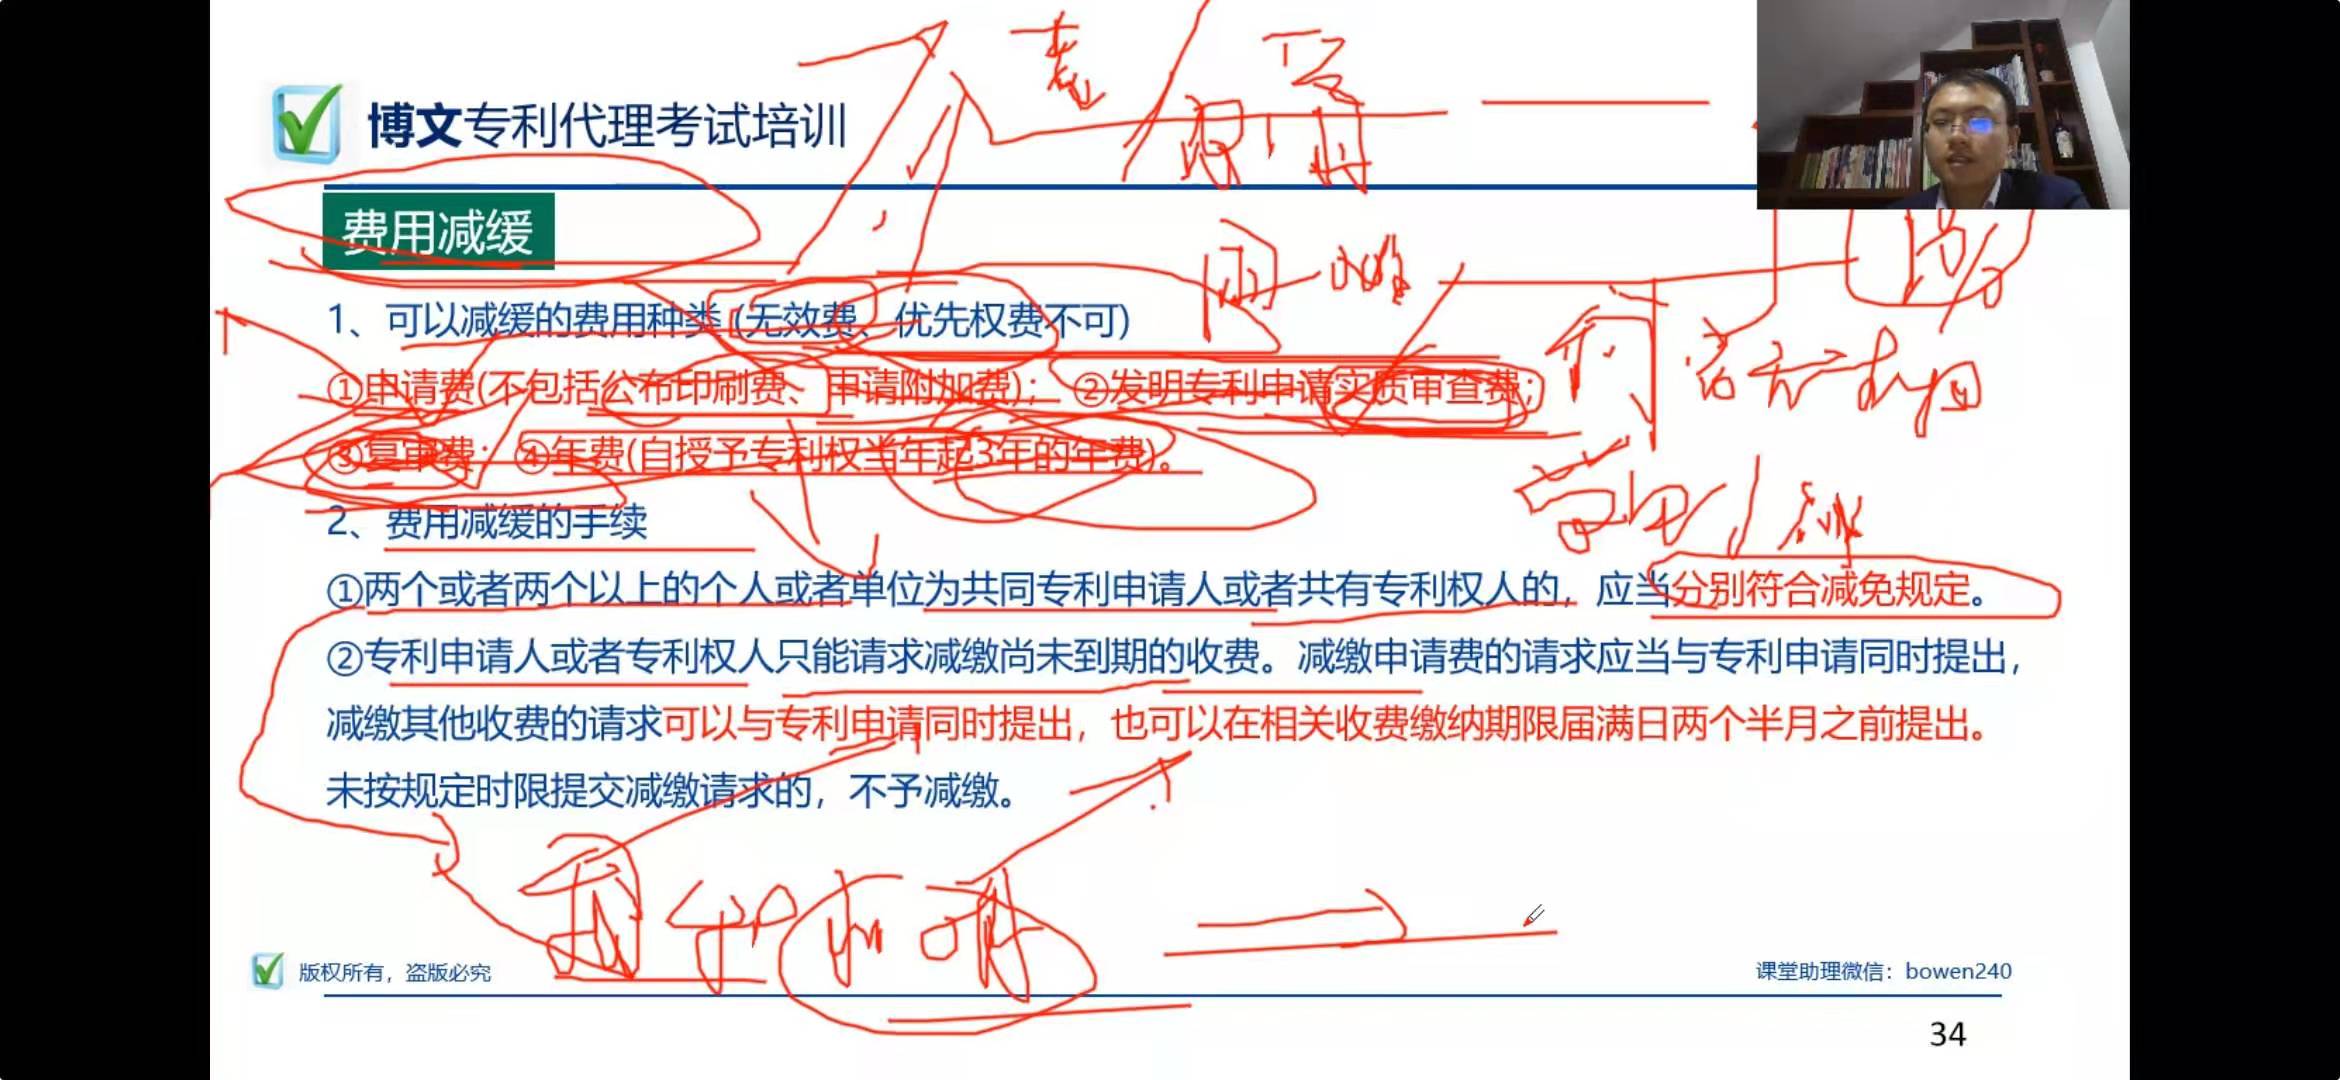 博文专利代理考试培训
费用减缓
1、可以减缓的费用种类 (无效费、优先权费不可)
①申请费(不包括公布印刷费、申请附加费)；②发明专利申请实质审查费；
③复审费；④年费(自授予专利权当年起3年的年费)。
2、费用减缓的手续
①两个或者两个以上的个人或者单位为共同专利申请人或者共有专利权人的，应当分别符合减免规定。
②专利申请人或者专利权人只能请求减缴尚未到期的收费。减缴申请费的请求应当与专利申请同时提出，
减缴其他收费的请求可以与专利申请同时提出，也可以在相关收费缴纳期限届满日两个半月之前提出。
未按规定时限提交减缴请求的，不予减缴。
版权所有，盗版必究
课堂助理微信：bowen240
34